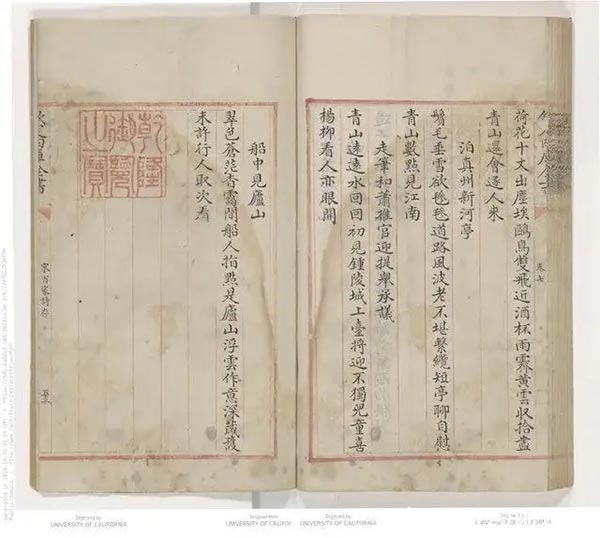 卷七
荷花十丈出塵埃鷗鳥雙飛近酒杯雨霽黃雲収拾盡
青山還會逐人來
泊真州新河亭
鬢毛垂雪欲毿毿道路風波老不堪繫纜短亭聊自慰
青山數點見江南
走筆和蕭推官迎提舉承議
青山遠遠水回回初見鍾陵城上臺將迎不獨兒童喜
楊柳看人亦眼開
船中見廬山
翠色蒼茫杳靄閒船人指點是廬山浮雲作意深藏護
未許行人取次看
乾隆御覽之寶
宋百家詩存
Digitized by
UNIVERSITY OF CALIFORNIA
Original from
UNIVERSITY OF CALIFOR
Digitized by
UNIVERSITY OF CALIFORNIA